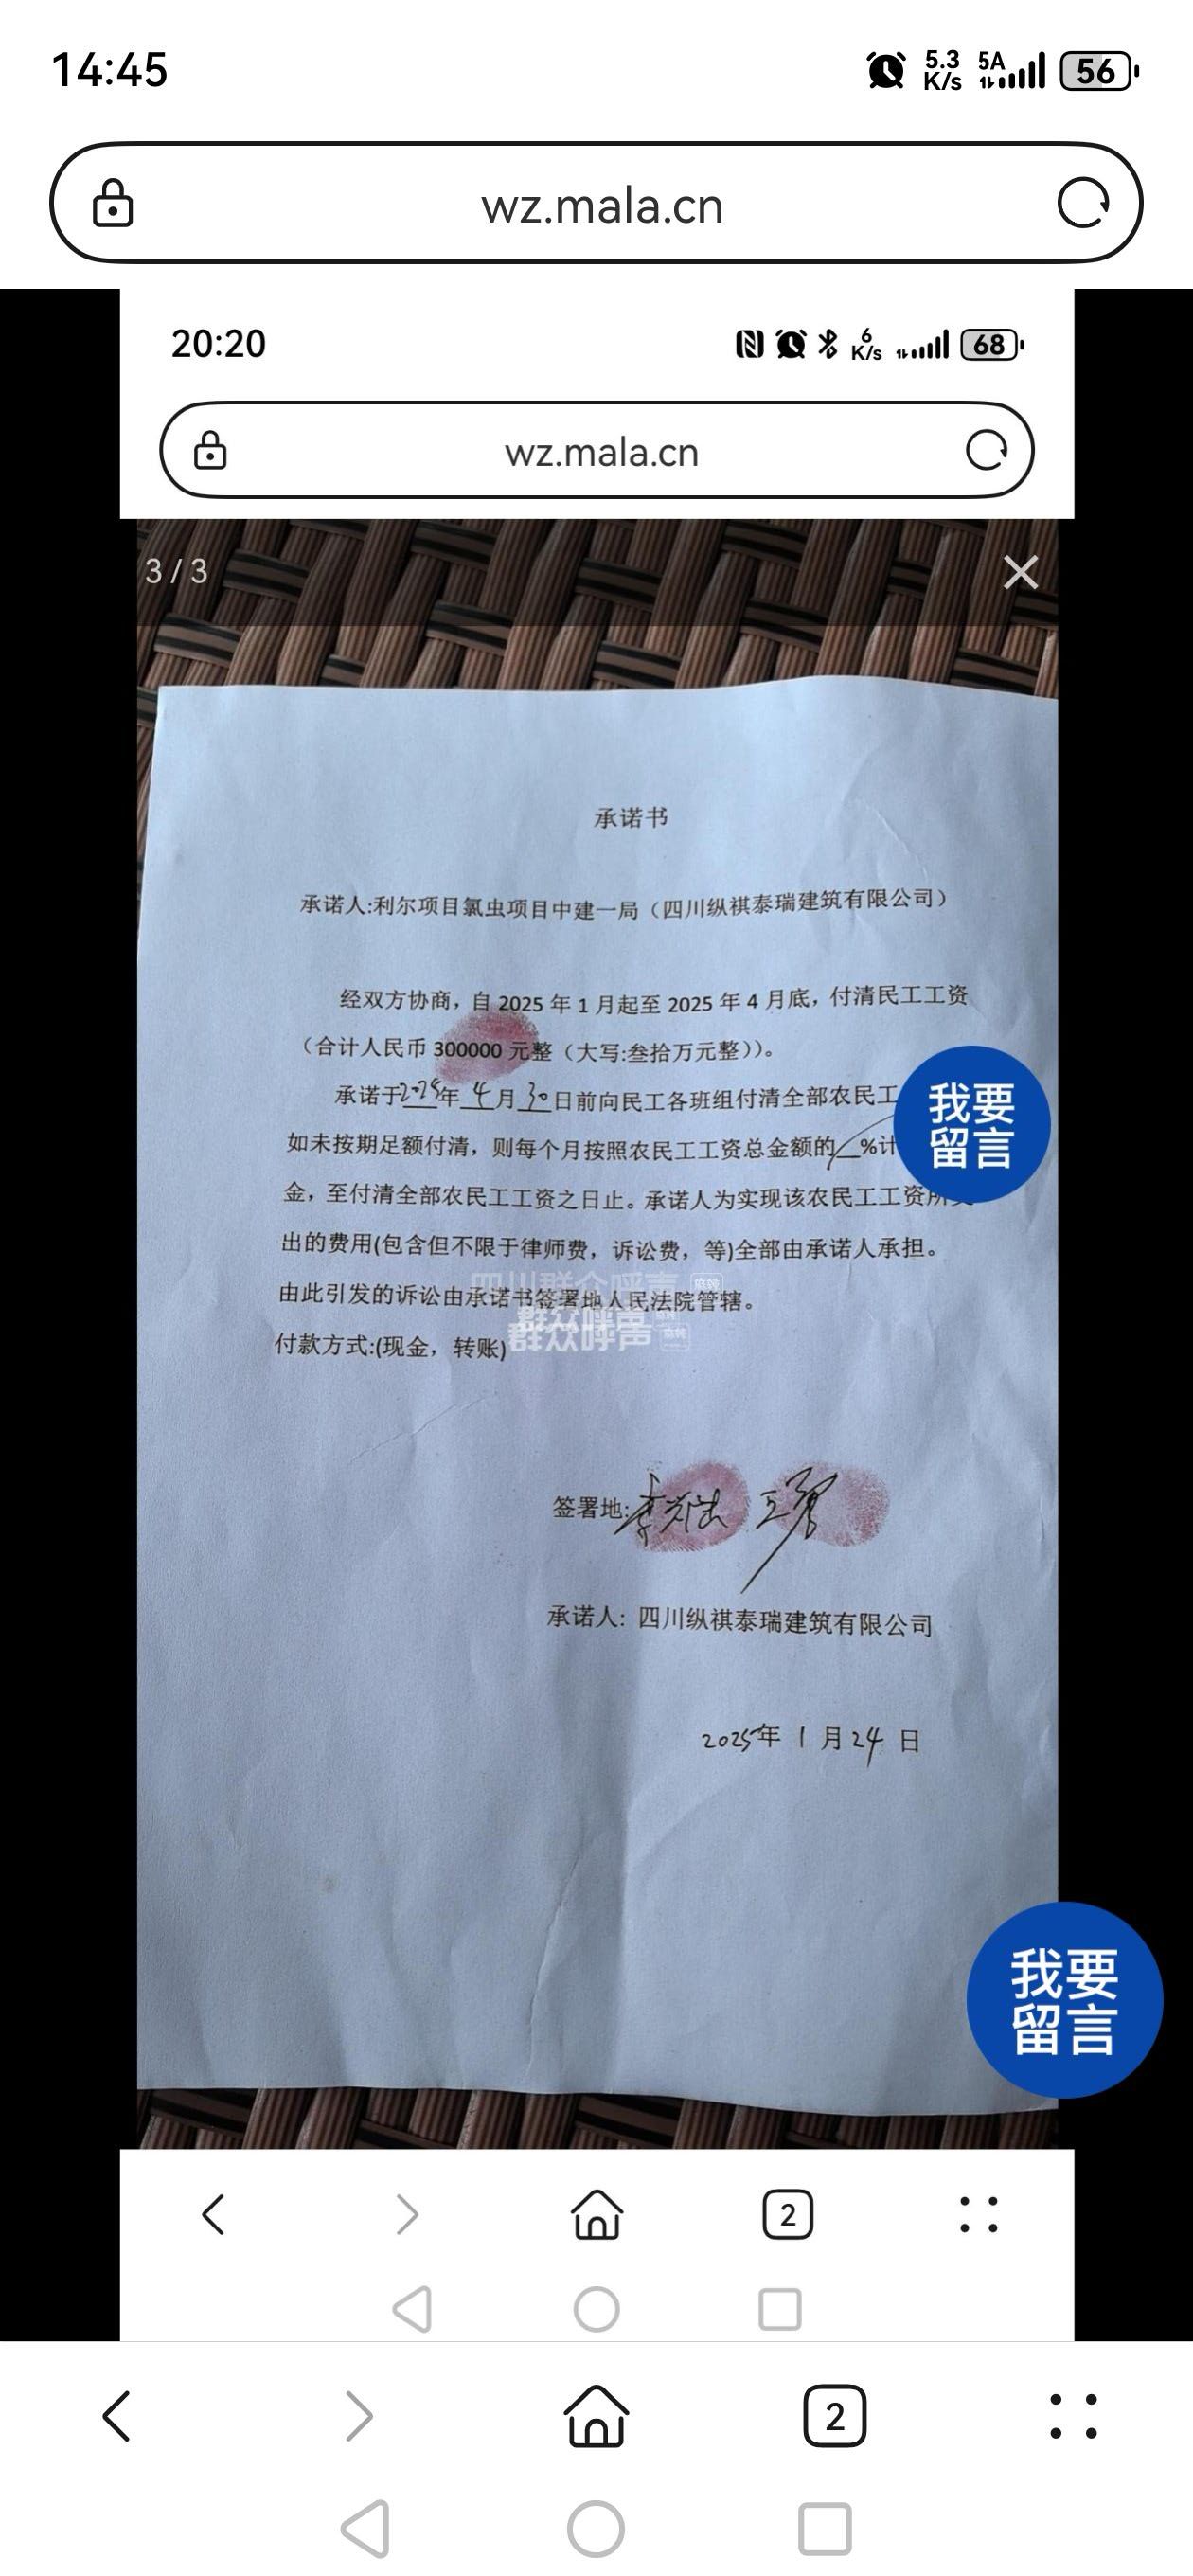 14:45
5.3 K/s 5A 56
wz.mala.cn
20:20
6 K/s 68
wz.mala.cn
3 / 3
承诺书
承诺人:利尔项目氯虫项目中建一局（四川纵祺泰瑞建筑有限公司）
经双方协商，自 2025 年 1 月起至 2025 年 4 月底，付清民工工资
（合计人民币 300000 元整（大写:叁拾万元整））。
承诺于2025年 4 月 30 日前向民工各班组付清全部农民工
如未按期足额付清，则每个月按照农民工工资总金额的 %计
金，至付清全部农民工工资之日止。承诺人为实现该农民工工资所
出的费用(包含但不限于律师费，诉讼费，等)全部由承诺人承担。
由此引发的诉讼由承诺书签署地人民法院管辖。
付款方式:(现金，转账)
四川群众呼声 麻辣
群众呼声
群众呼声 麻辣
我要
留言
签署地:
承诺人: 四川纵祺泰瑞建筑有限公司
2025年 1 月 24 日
我要
留言
2
2